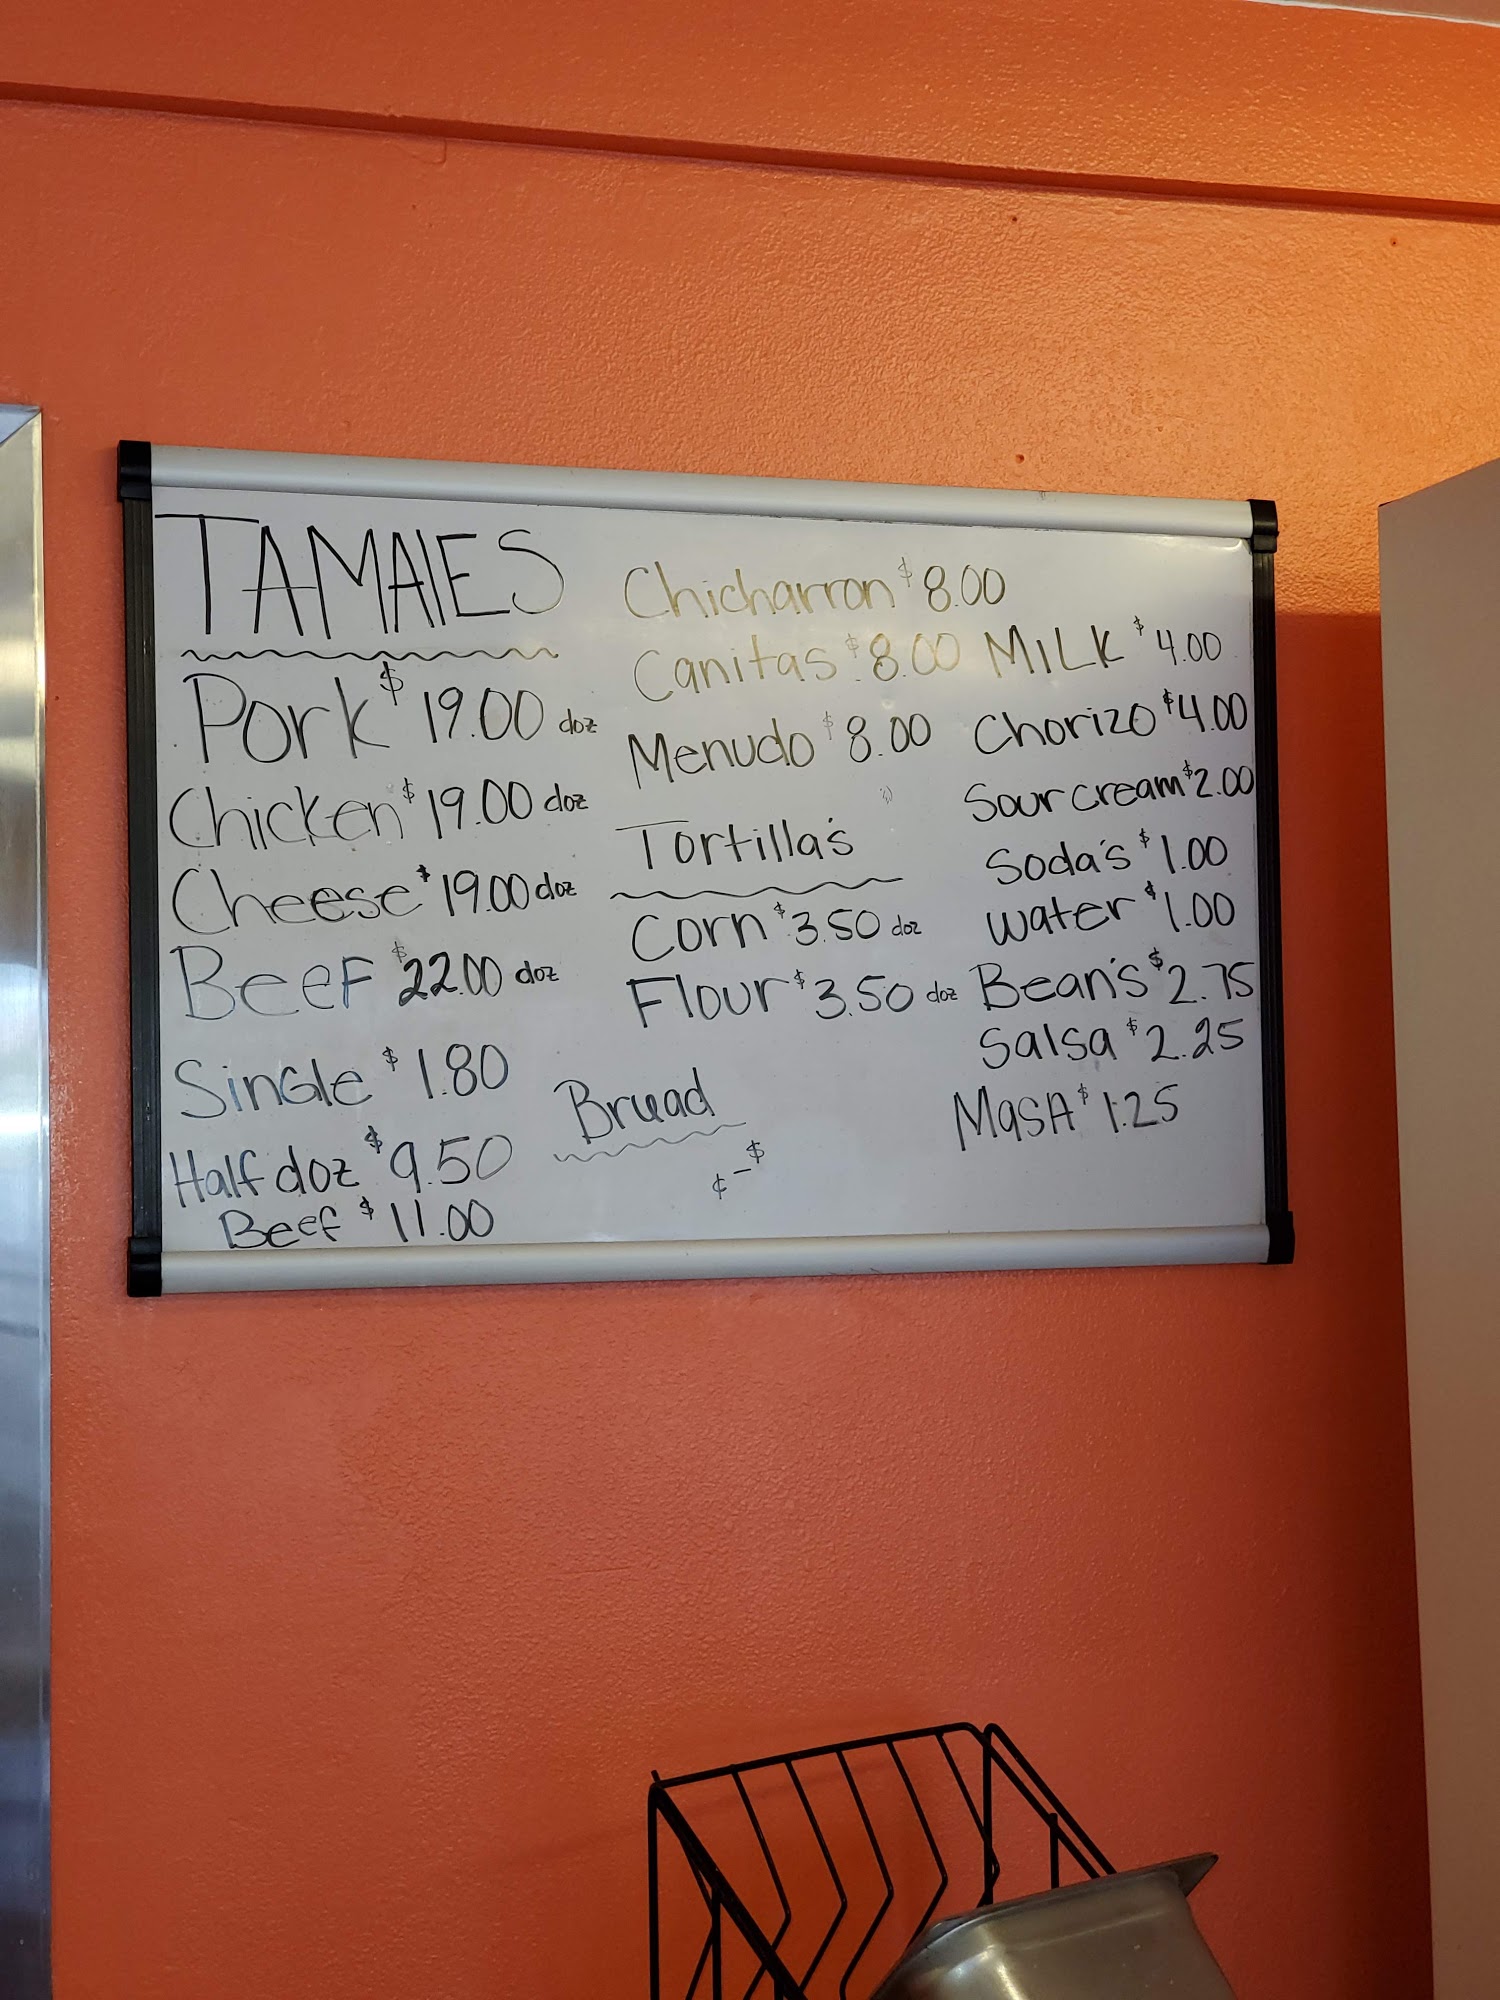 TAMAlES
Pork $19.00 doz
Chicken $19.00 doz
Cheese $19.00 doz
BeeF $22.00 doz
SinGle $1.80
Half doz $9.50
Beef $11.00
Chicharron $8.00
Canitas $8.00
Menudo $8.00
Tortilla's
Corn $3.50 doz
Flour $3.50 doz
Bruad
¢-$
MiLK $4.00
Chorizo $4.00
Sour cream $2.00
Soda's $1.00
water $1.00
Bean's $2.75
Salsa $2.25
MasA $1.25